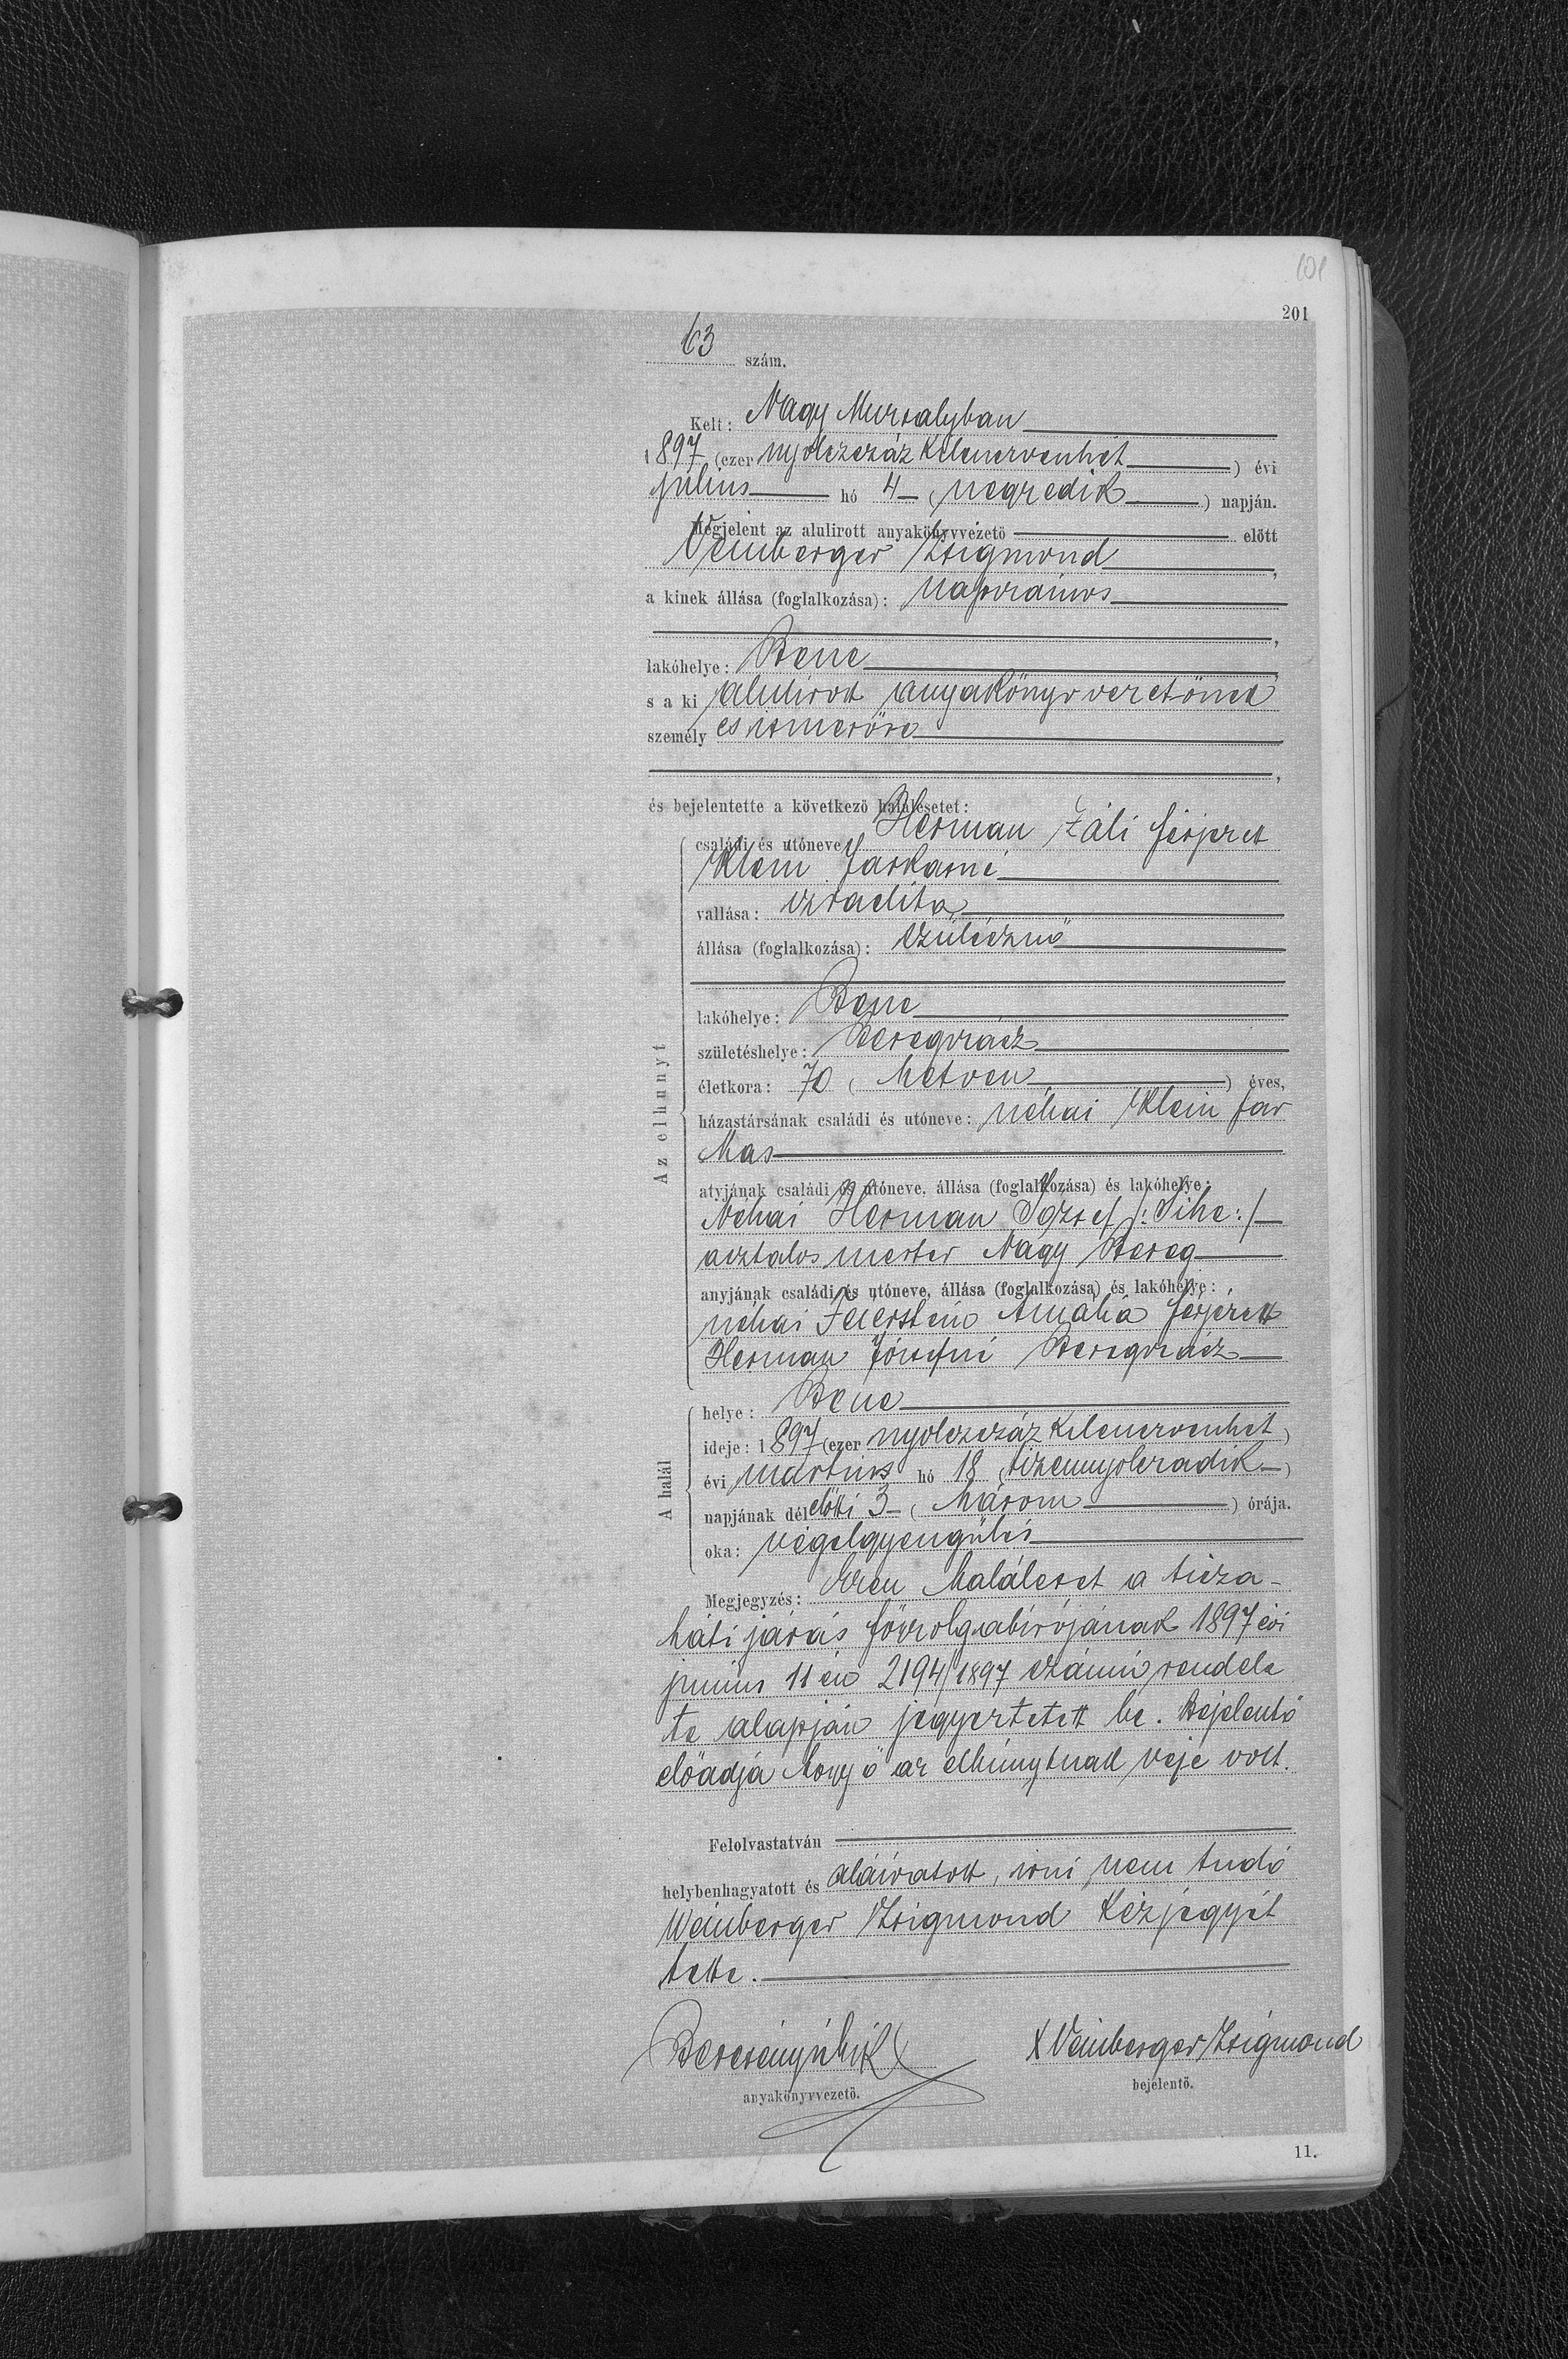 101
201
63 szám.
Kelt: Nagy Muzsalyban
1897 (ezer nyolczszáz kilenczvenhét) évi
július hó 4 (negyedik) napján.
Megjelent az alulirott anyakönyvvezető előtt
Veinberger Zsigmond,
a kinek állása (foglalkozása): napszámos
,
lakóhelye: Bene
s a ki alulirott anyakönyvvezetőnek
személy es ismerőse
,
és bejelentette a következő halálesetet:
családi és utóneve: Herman Záli férjezett
Klein Farkasné
vallása: izraelita
állása (foglalkozása): szülésznő
lakóhelye: Bene
születéshelye: Beregrász
életkora: 70 (hetven) éves,
házastársának családi és utóneve: néhai Klein Far
kas
atyjának családi és utóneve, állása (foglalkozása) és lakóhelye:
Néhai Herman József /: Sihe :/
asztalos mester Nagy Bereg
anyjának családi és utóneve, állása (foglalkozása) és lakóhelye:
néhai Feierstein Amália férjezett
Herman Józsefné Beregrász
helye: Bene
ideje: 1897 (ezer nyolczszáz kilenczvenhét)
évi martius hó 18 (tizennyolczadik)
napjának délelőtti 3 (három) órája.
oka: végelgyengülés
Az elhunyt
A halál
Megjegyzés: Ezen haláleset a tisza-
háti járás főszolgabírójának 1897 évi
junius 11 én 2194/1897 számú rendele
te alapján jegyeztetett be. Bejelentő
előadja hogy ő az elhúnytnak veje volt.
Felolvastatván
helybenhagyatott és aláiratott, irni nem tudó
Weinberger Zsigmond kézjegyét
tette.
anyakönyvvezető.
X Veinberger Zsigmond
bejelentő.
11.